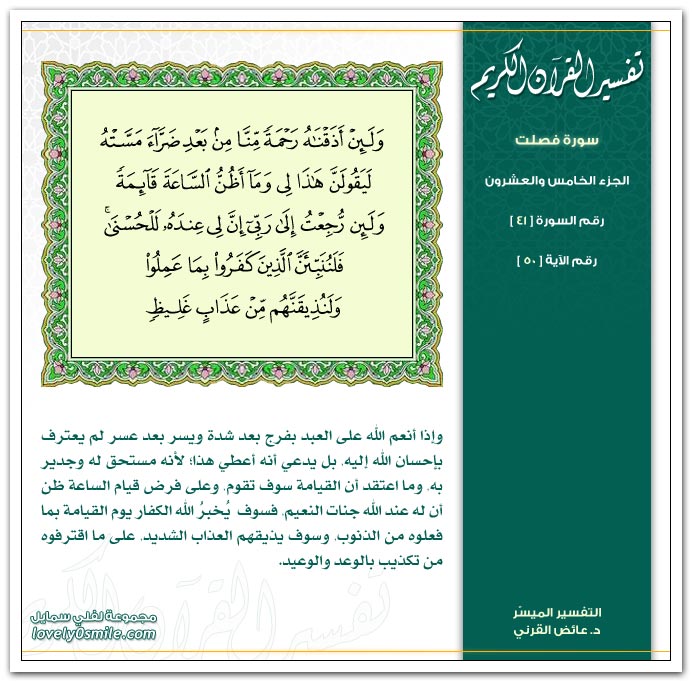 تفسير القرآن الكريم
سورة فصلت
الجزء الخامس والعشرون
رقم السورة [ ٤١ ]
رقم الآية [ ٥٠ ]
وَلَئِنْ أَذَقْنَٰهُ رَحْمَةً مِّنَّا مِنۢ بَعْدِ ضَرَّآءَ مَسَّتْهُ
لَيَقُولَنَّ هَٰذَا لِى وَمَآ أَظُنُّ ٱلسَّاعَةَ قَآئِمَةً
وَلَئِن رُّجِعْتُ إِلَىٰ رَبِّىٓ إِنَّ لِى عِندَهُۥ لَلْحُسْنَىٰ ۚ
فَلَنُنَبِّئَنَّ ٱلَّذِينَ كَفَرُوا۟ بِمَا عَمِلُوا۟
وَلَنُذِيقَنَّهُم مِّنْ عَذَابٍ غَلِيظٍ
وإذا أنعم الله على العبد بفرج بعد شدة ويسر بعد عسر لم يعترف
بإحسان الله إليه، بل يدعي أنه أعطي هذا؛ لأنه مستحق له وجدير
به، وما اعتقد أن القيامة سوف تقوم، وعلى فرض قيام الساعة ظن
أن له عند الله جنات النعيم، فسوف يُخبرُ الله الكفار يوم القيامة بما
فعلوه من الذنوب، وسوف يذيقهم العذاب الشديد، على ما اقترفوه
من تكذيب بالوعد والوعيد.
تفسير القرآن الكريم
مجموعة لفلي سمايل
lovely0smile.com
التفسير الميسّر
د. عائض القرني